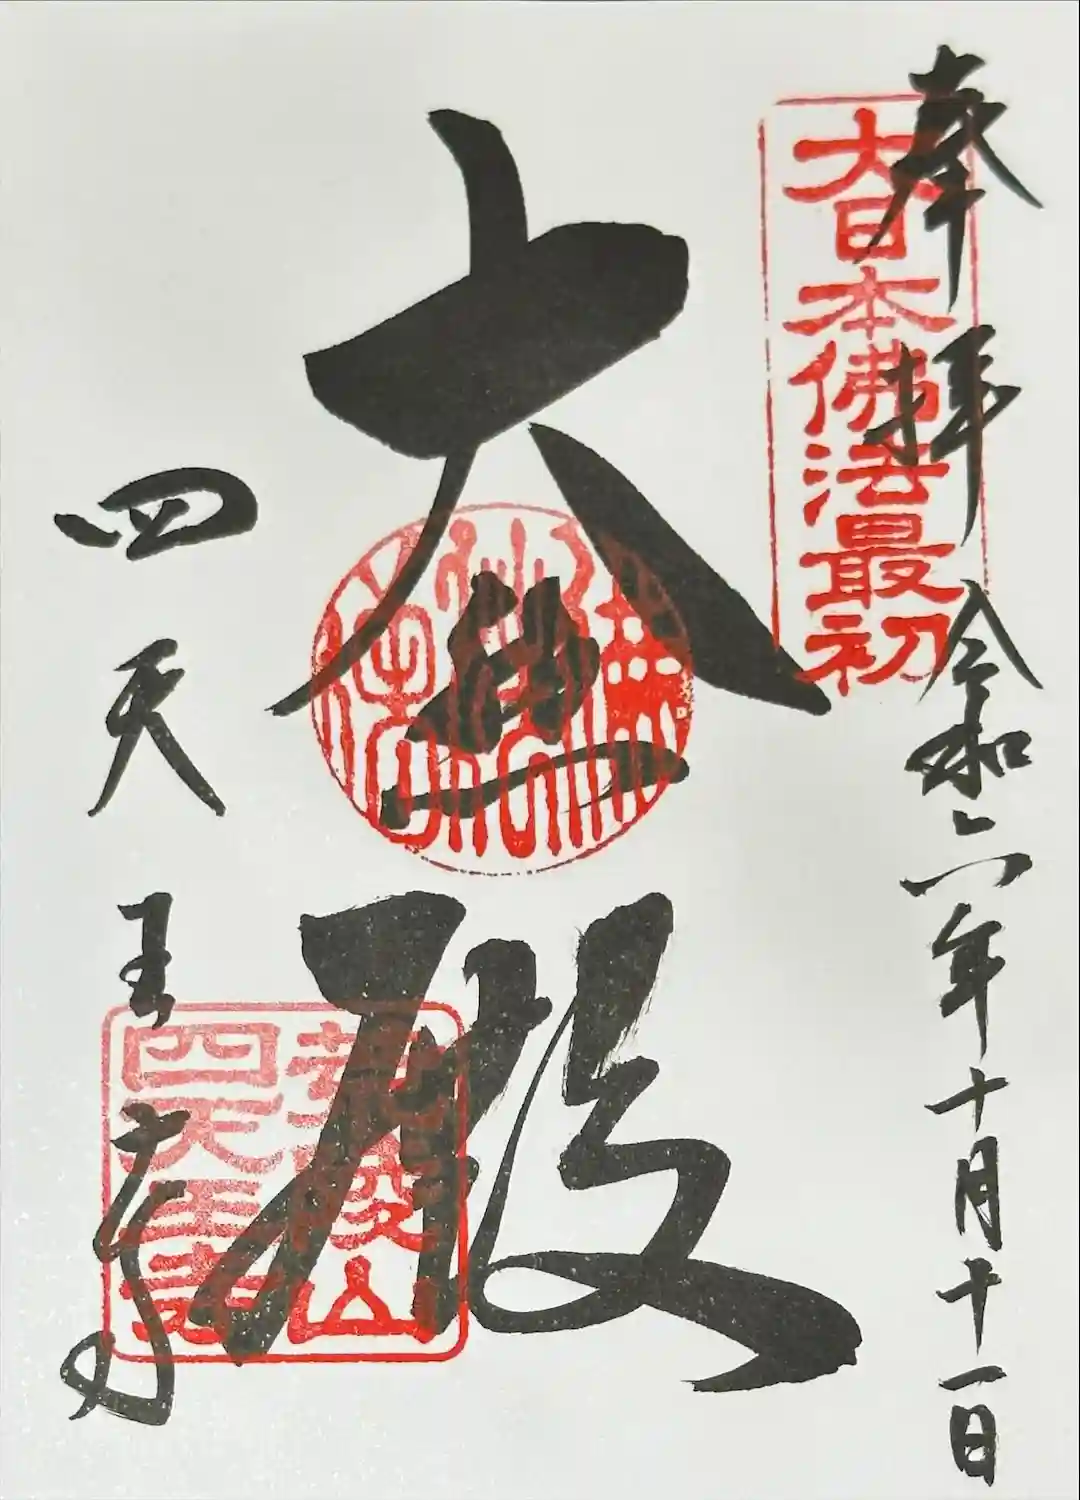 奉拝 令和六年十月十一日
大日本佛法最初
大典殿
四天王寺
荒陵山
四天王寺